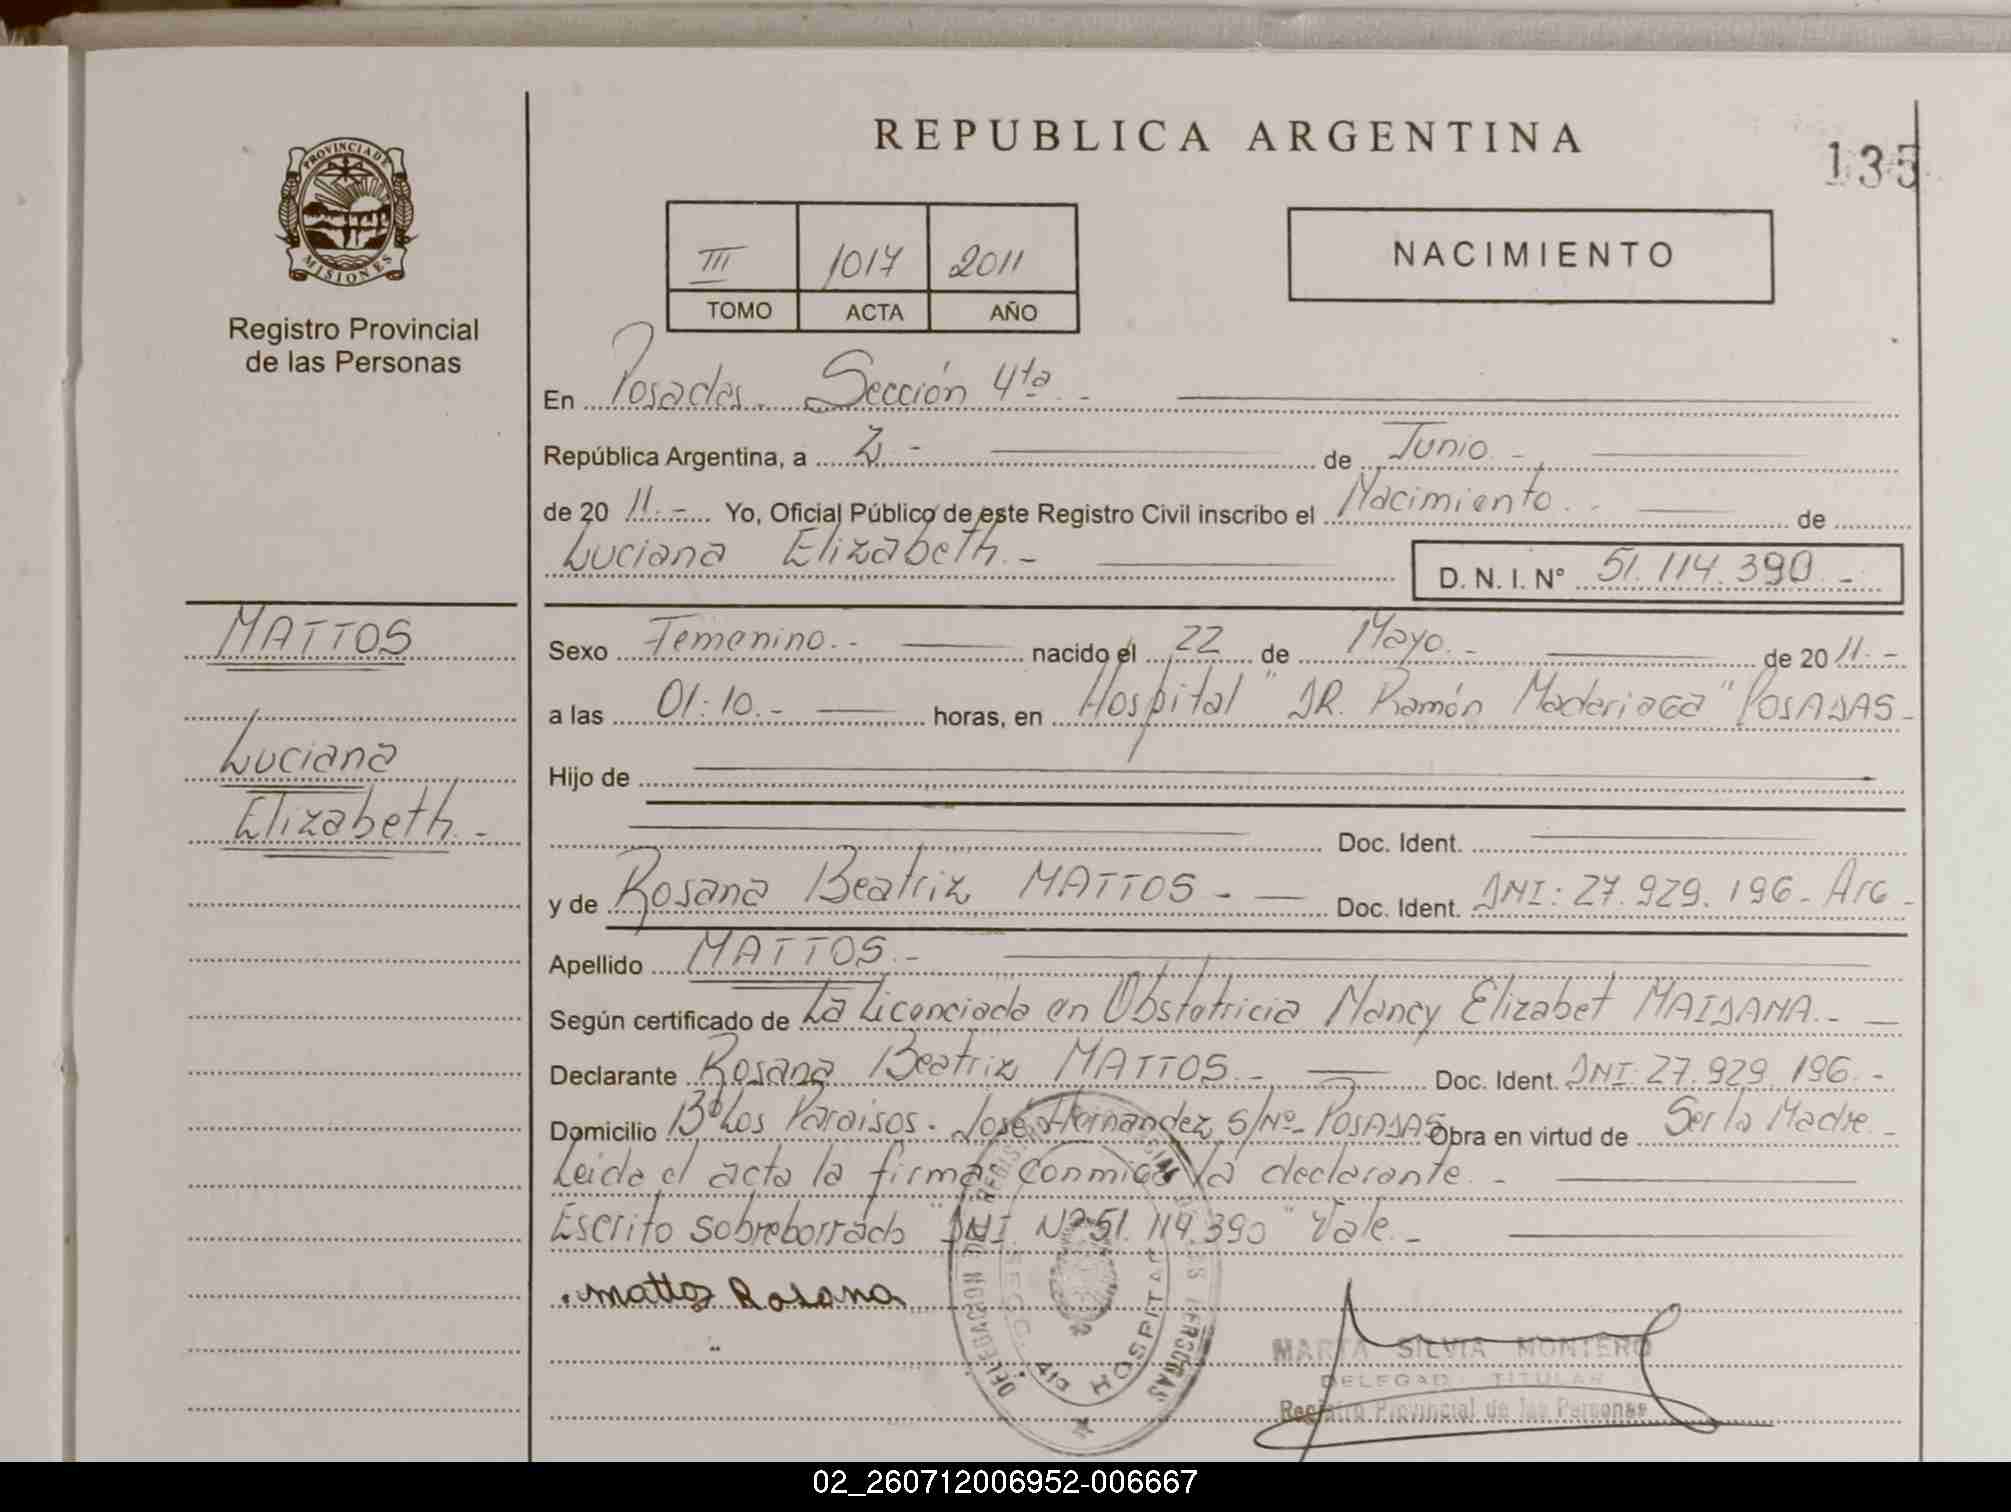 REPUBLICA ARGENTINA
135
PROVINCIA DE
MISIONES
Registro Provincial
de las Personas
III 1017 2011
TOMO ACTA AÑO
NACIMIENTO
En Posadas. Sección 4ta.-
República Argentina, a 2.- de Junio.-
de 2011.- Yo, Oficial Público de este Registro Civil inscribo el Nacimiento.- de
Luciana Elizabeth.- D. N. I. Nº 51.114.390.-
MATTOS
Luciana
Elizabeth.-
Sexo Femenino.- nacido el 22 de Mayo.- de 2011.-
a las 01:10.- horas, en Hospital "DR. Ramón Madariaga" POSADAS-
Hijo de
Doc. Ident.
y de Rosana Beatriz MATTOS- Doc. Ident. DNI: 27.929.196- Arg-
Apellido MATTOS.-
Según certificado de La Licenciada en Obstetricia Nancy Elizabet MAIDANA.-
Declarante Rosana Beatriz MATTOS.- Doc. Ident. DNI. 27.929.196.-
Domicilio Bº Los Paraisos. José Hernandez S/Nº- POSADAS Obra en virtud de Ser la Madre.-
Leida el acta la firma conmigo la declarante.-
Escrito sobreborrado "DNI. Nº 51.114.390" Vale.-
Mattos Rosana
DELEGACION DEL REGISTRO PROVINCIAL DE LAS PERSONAS
SECC. 4ta HOSPITAL
MARTA SILVIA MONTERO
DELEGADA TITULAR
Registro Provincial de las Personas
02_260712006952-006667